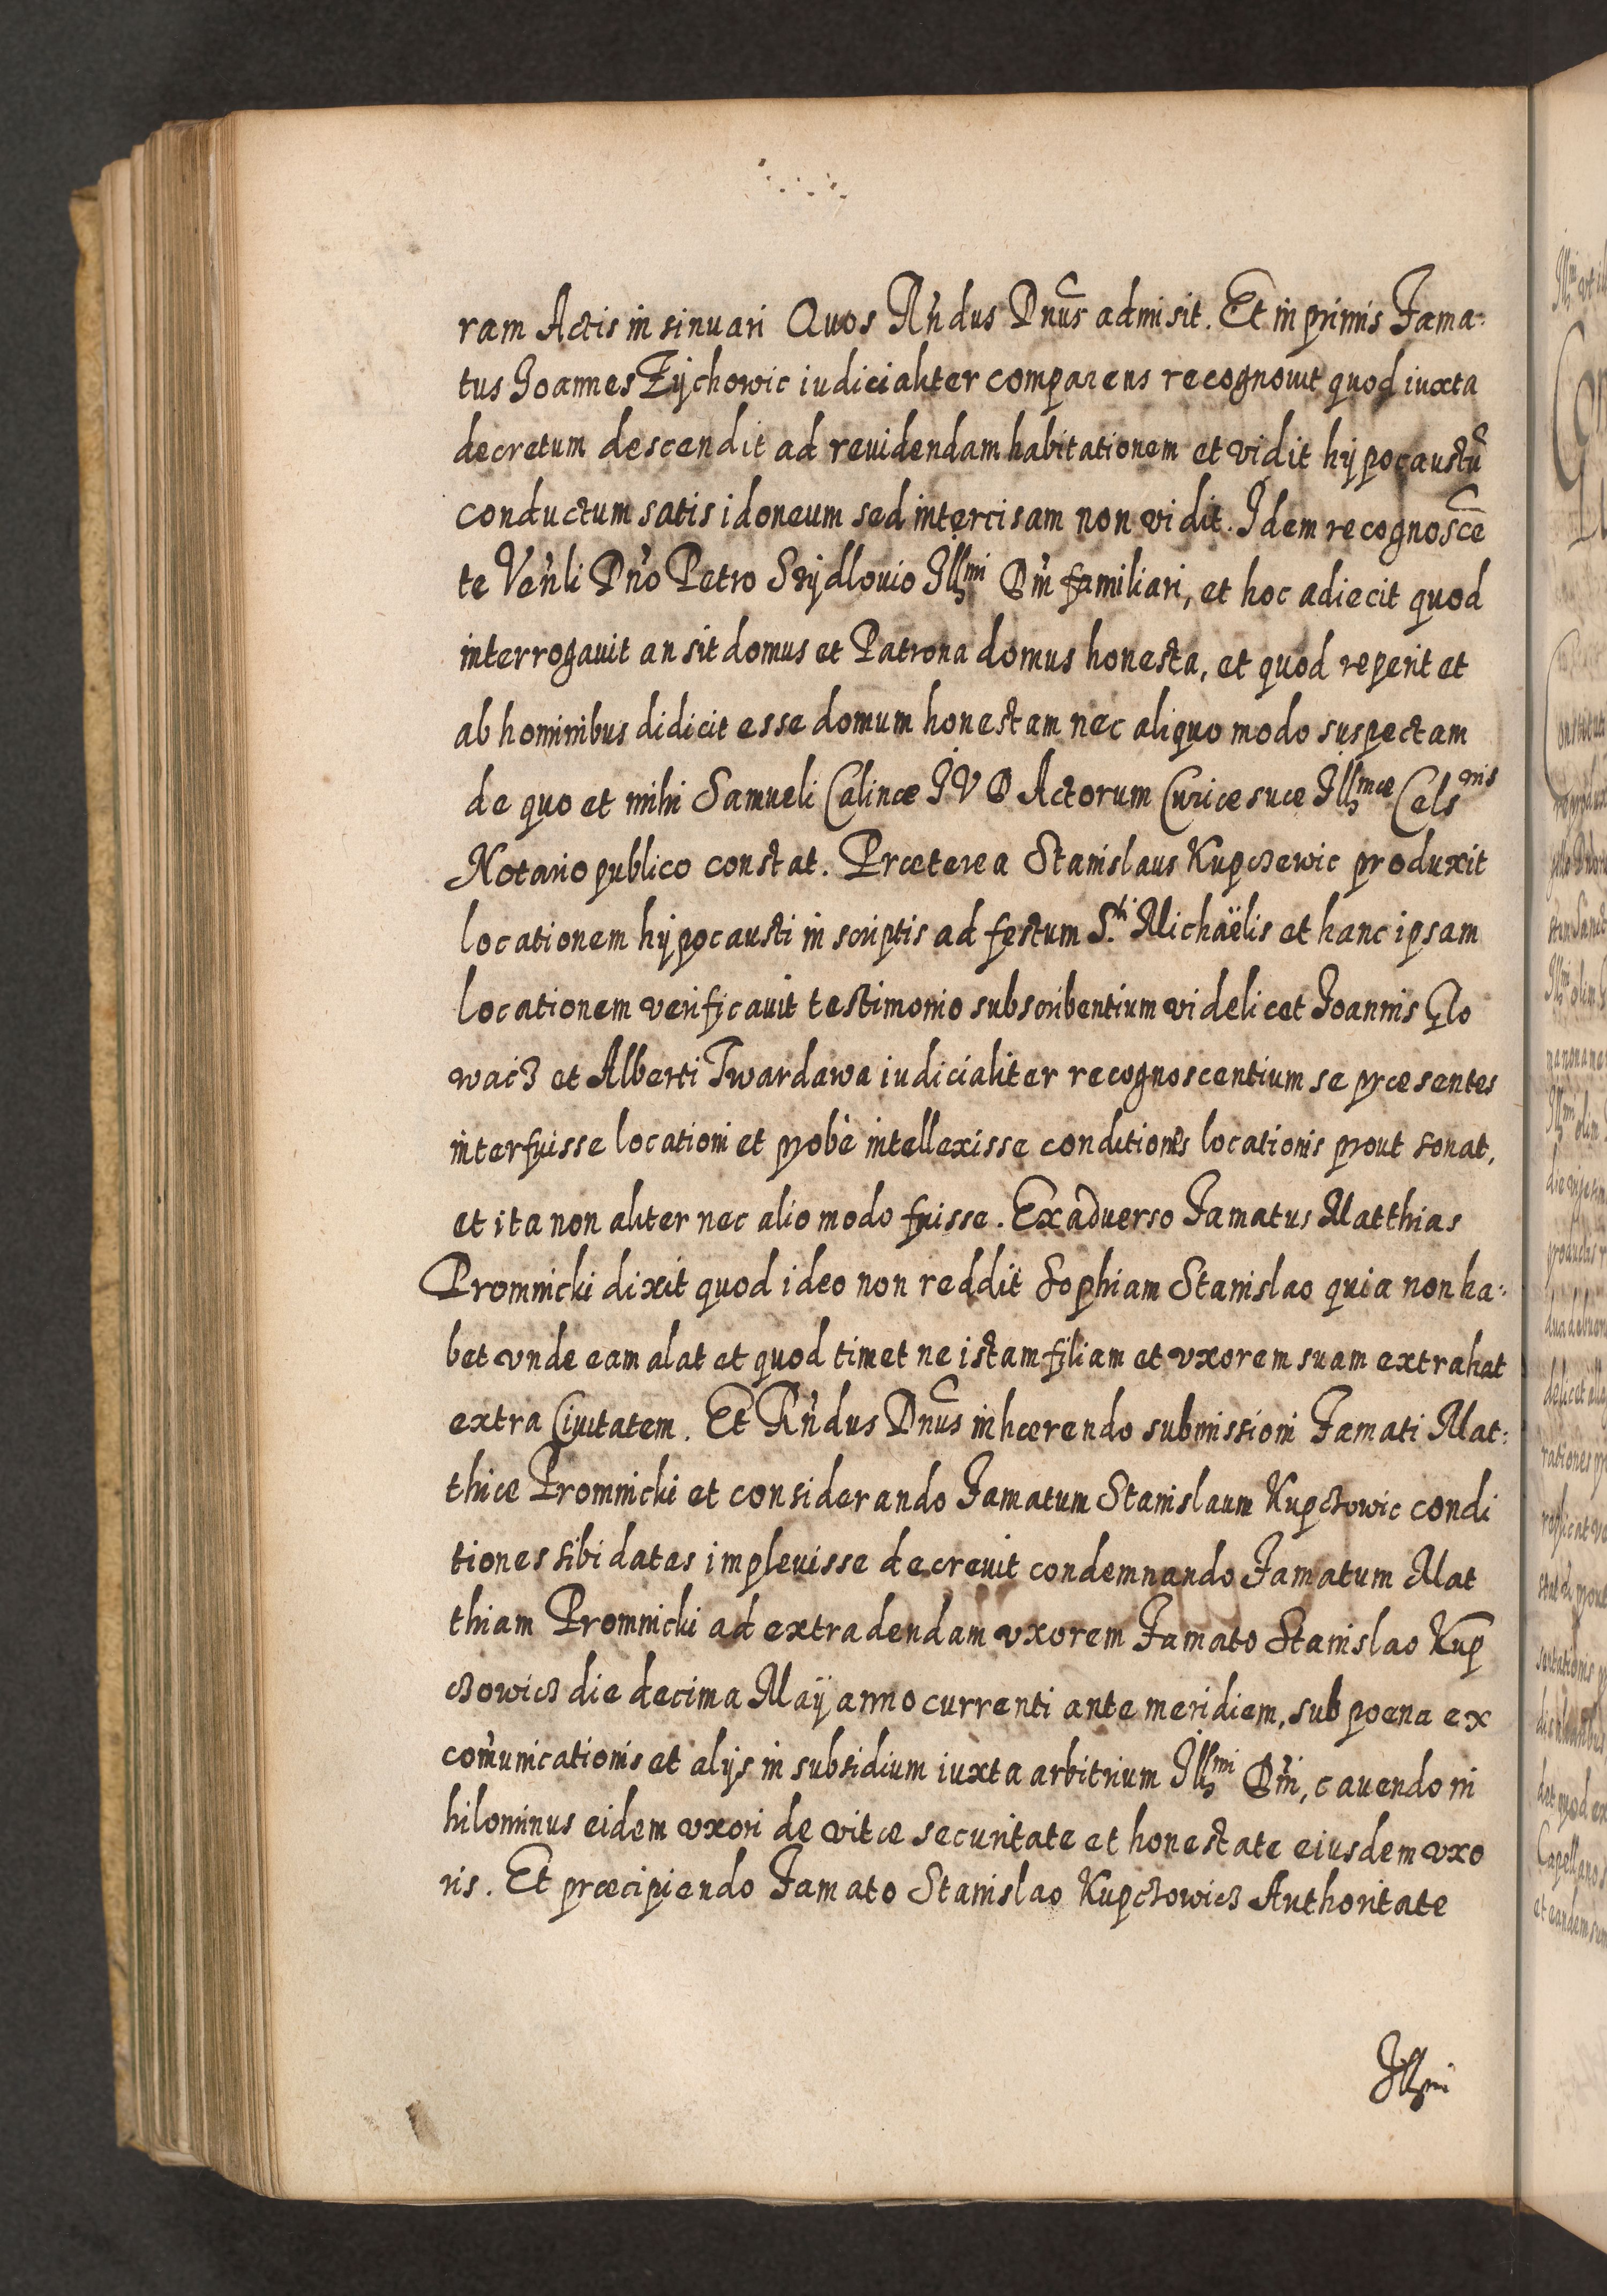 ram Actis insinuari Quos Rńdus Dnūs admisit. Et in primis Fama-
tus Joannes Zÿchowic iudicialiter comparens recognouit quod iuxta
decretum descendit ad reuidendam habitationem et vidit hÿpocaustū
conductum satis idoneum sed intercisam non vidit. Idem recognoscē
te Veńli Dńo Petro Szÿdlouio Illmi Dńi familiari, et hoc adiecit quod
interrogauit an sit domus et Patrona domus honesta, et quod reperit et
ab hominibus didicit esse domum honestam nec aliquo modo suspectam
de quo et mihi Samueli Calinæ IVD Actorum Curiæ suæ Illmæ Celsnis
Notario publico constat. Præterea Stanislaus Kupczewic produxit
locationem hÿpocausti in scriptis ad festum S.ti Michaëlis et hanc ipsam
locationem verificauit testimonio subscribentium videlicet Joannis Glo
wacz et Alberti Twardawa iudicialiter recognoscentium se præsentes
interfuisse locationi et probè intellexisse conditiones locationis prout sonat,
et ita non aliter nec alio modo fuisse. Ex aduerso Famatus Matthias
Promnicki dixit quod ideo non reddit Sophiam Stanislao quia non ha-
bet vnde eam alat et quod timet ne istam filiam et vxorem suam extrahat
extra Ciuitatem. Et Rńdus Dnūs inhærendo submissioni Famati Mat-
thiæ Promnicki et considerando Famatum Stanislaum Kupczowic condi
tiones sibi datas impleuisse decreuit condemnando Famatum Mat
thiam Promnicki ad extradendam vxorem Famato Stanislao Kup
czowicz die decima Maÿ anno currenti ante meridiem, sub poena ex
com̃unicationis et alÿs in subsidium iuxta arbitrium Illmi Dńi, cauendo ni
hilominus eidem vxori de vitæ securitate et honestate eiusdem vxo
ris. Et præcipiendo Famato Stanislao Kupczowicz Authoritate
Illmi